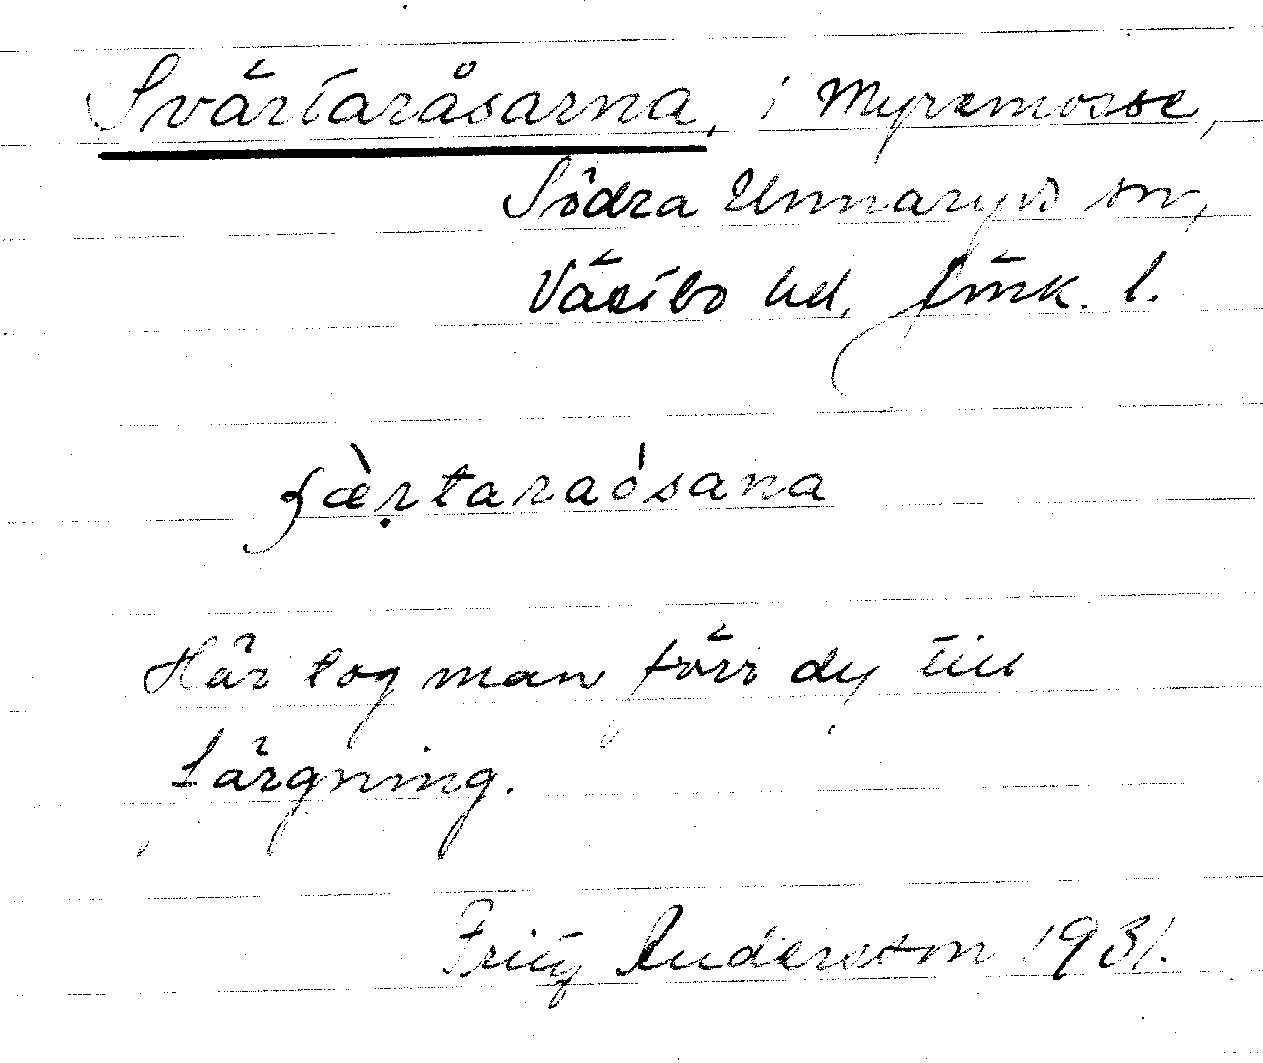 Svärtaråsarna, i Myremosse,
Södra Unnaryds sn,
Västbo hd, Jönk. l.
såe̩rtaraósana
Här tog man förr dy till
färgning.
Fritz Andersson 1931.